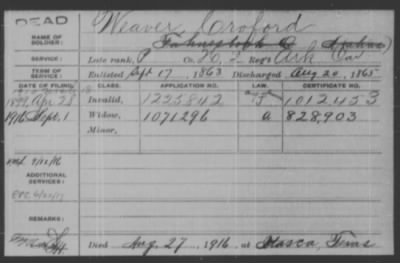 DEAD
Weaver Croford
NAME OF SOLDIER:
SERVICE: Late rank, P Co. H, 2 Reg't Ark Cav
TERM OF SERVICE: Enlisted Sept 17, 1863 Discharged Aug 20, 1865
DATE OF FILING. CLASS. APPLICATION NO. LAW. CERTIFICATE NO.
1899, Apr 28 Invalid, 1225842 1012453
1916 Sept. 1 Widow, 1071296 a 828,903
Minor,
ADDITIONAL SERVICES:
REMARKS:
Died Aug. 27, 1916, at Itasca, Texas